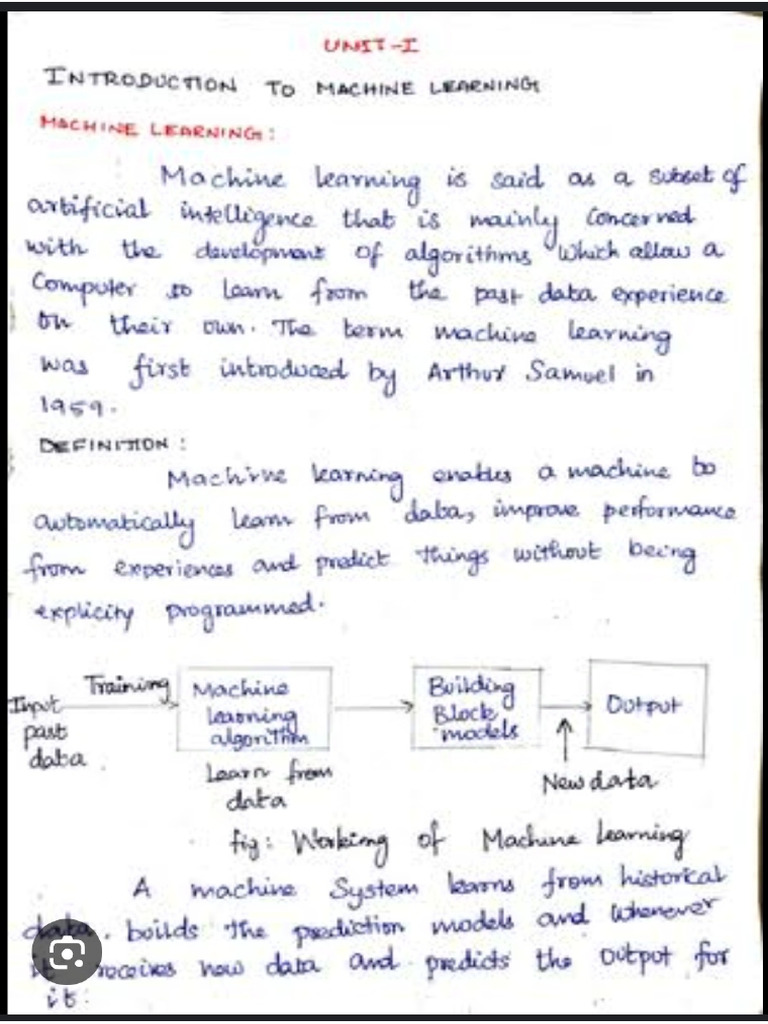 UNIT-I
INTRODUCTION TO MACHINE LEARNING
MACHINE LEARNING:
Machine learning is said as a subset of
artificial intelligence that is mainly concerned
with the development of algorithms which allow a
Computer to learn from the past data experience
on their own. The term machine learning
was first introduced by Arthur Samuel in
1959.
DEFINITION:
Machine learning enables a machine to
automatically learn from data, improve performance
from experiences and predict things without being
explicity programmed.
Input past data
Training
Machine learning algorithm
Learn from data
Building Block models
New data
Output
fig: Working of Machine Learning
A machine System learns from historical
data. builds the prediction models and whenever
it receives new data and predicts the output for
it.